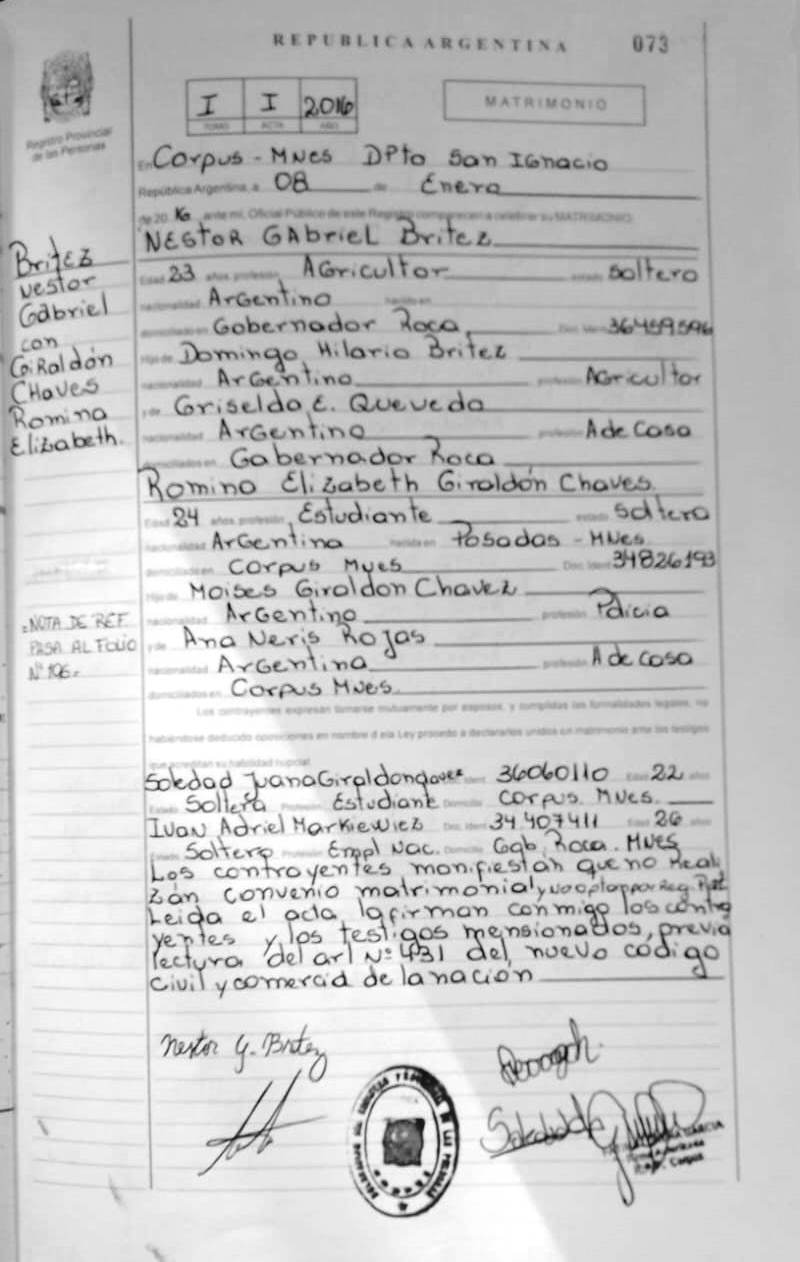 REPUBLICA ARGENTINA 073
Registro Provincial
de las Personas
I I 2016
TOMO ACTA AÑO
MATRIMONIO
En Corpus - MNes DPto San IGnacio
República Argentina, a 08 de Enero
de 20 16 ante mí, Oficial Público de este Registro comparecen a celebrar su MATRIMONIO
NESTOR GAbriel Britez
Edad 23 años, profesión, AGricultor estado soltero
nacionalidad ArGentino nacido en
domiciliado en Gobernador Roca Doc. Ident 36459596
Hijo de Domingo Hilario Britez
nacionalidad ArGentino profesión AGricultor
y de Griselda E. Quevedo
nacionalidad ArGentina profesión A de Casa
domiciliados en Gobernador Roca
Romina Elizabeth Giraldón Chaves.
Edad 24 años, profesión, Estudiante estado soltera
nacionalidad ArGentina nacida en Posadas - MNes
domiciliada en Corpus Mnes Doc. Ident 34826193
Hija de Moises Giraldon Chavez
nacionalidad ArGentino profesión Policia
y de Ana Neris Rojas
nacionalidad ArGentina profesión A de casa
domiciliados en Corpus MNes.
Los contrayentes expresan tomarse mutuamente por esposos, y cumplidas las formalidades legales, no
habiéndose deducido oposiciones en nombre d ela Ley procedo a declararlos unidos en matrimonio ante los testigos
que acreditan su habilidad nupcial
Soledad Juana Giraldon Doc. Ident 36060110 Edad 22 años
Estado Soltera Profesión Estudiante Domicilio Corpus. MNes.
Ivan Adriel Markiewicz Doc. Ident 34407411 Edad 26 años
Estado Soltero Profesión Empl Nac. Domicilio Gob Roca. MNes
Los contrayentes manifiestan que no Reali
zán convenio matrimonial y no optan por Reg.
Leida el acta, la firman conmigo los contra
yentes y los testigos mensionados, previa
lectura del art Nº 431 del nuevo codigo
Civil y comercial de la nacion
Britez
nestor
Gabriel
con
GiRaldón
CHaves
Romina
Elizabeth.
NOTA DE REF
PASA AL FOLIO
Nº 106
Nestor G. Britez